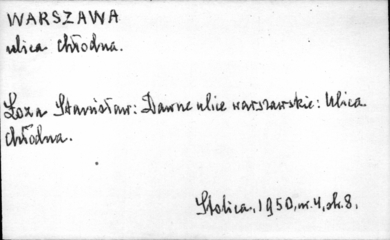 WARSZAWA
ulica Chłodna.
Łoza Stanisław: Dawne ulice warszawskie: Ulica
Chłodna.
Stolica, 1950, nr. 4, str. 8.